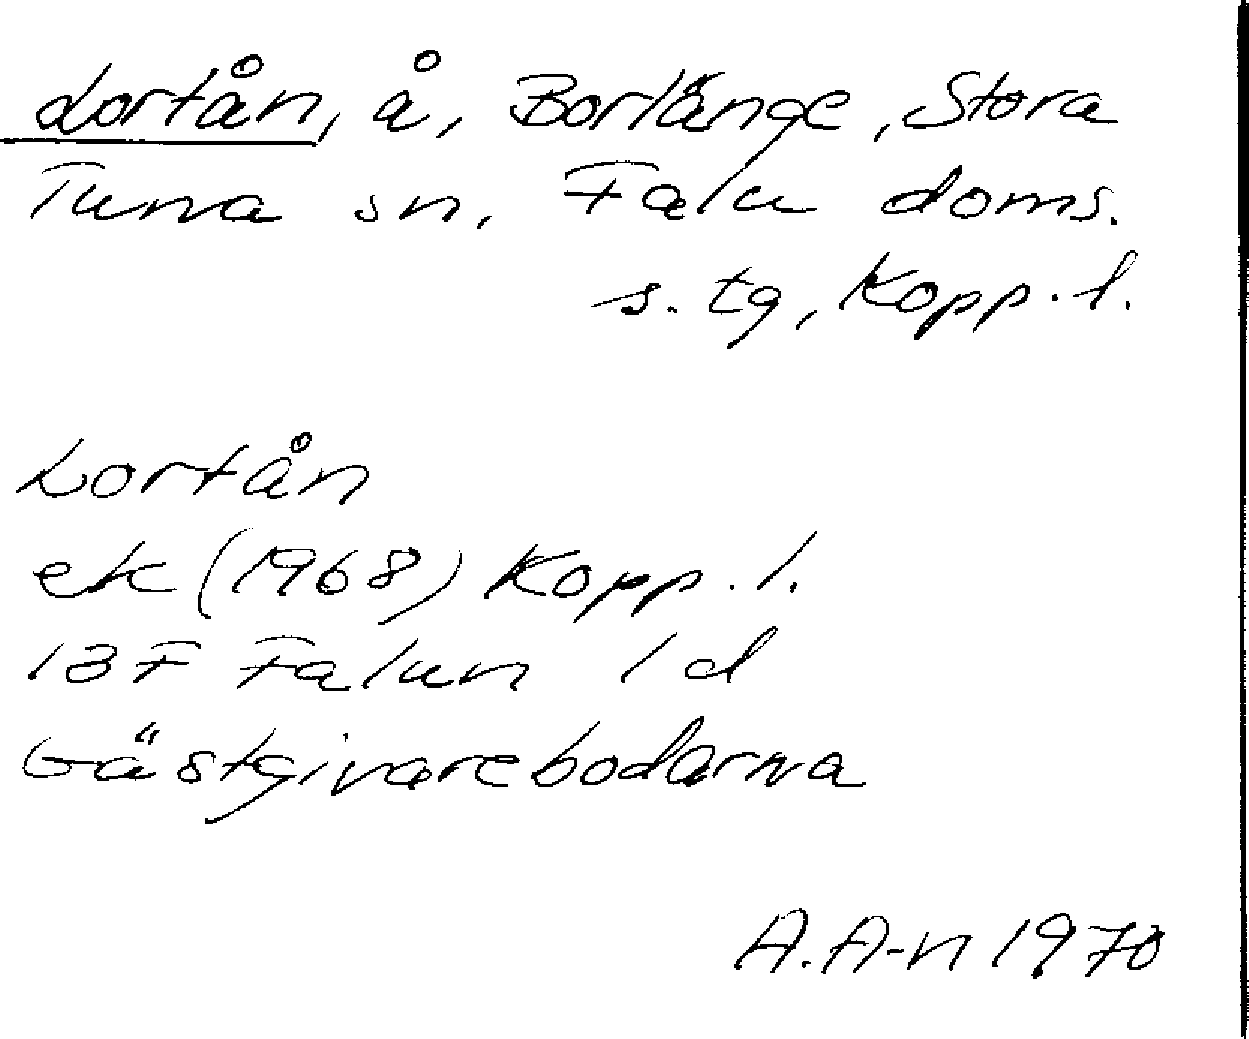 Lortån, å, Borlänge, Stora
Tuna sn, Falu doms.
s. tg, Kopp. l.
Lortån
ek (1968) Kopp. l.
13F Falun 1 d
Gästgivarebodarna
A. A-n 1970